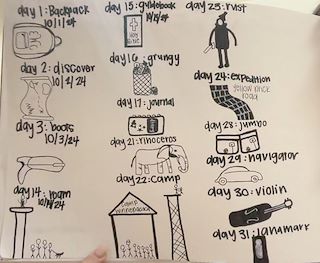 day 1: Backpack
10/1/24
day 2: discover
10/2/24
day 3: boots
10/3/24
day 14: roam
day 15: guidebook
HOLY
BIBLE
day 16: grungy
day 17: journal
day 21: rinoceros
day 22: camp
camp
day 23: rust
day 24: expedition
yellow brick
road
day 28: jumbo
day 29: navigator
day 30: violin
day 31: landmark